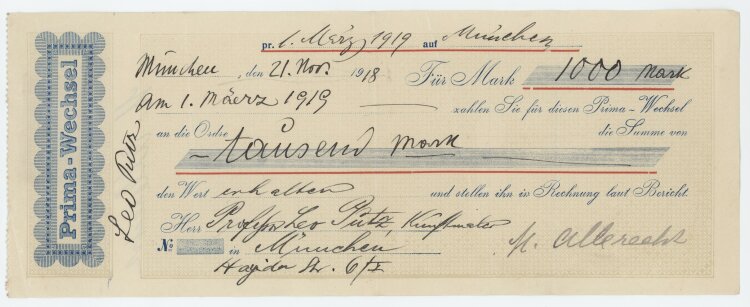 Prima-Wechsel
Leo Putz
pr. 1. März 1919 auf München
München, den 21. Nov. 1918 Für Mark 1000 Mark
Am 1. Määrz 1919 zahlen Sie für diesen Prima-Wechsel
an die Ordre die Summe von
tausend Mark
den Wert erhalten und stellen ihn in Rechnung laut Bericht.
Herr Professor Leo Putz Kunstmaler
No. in München M. Albrecht
Str. 6/I